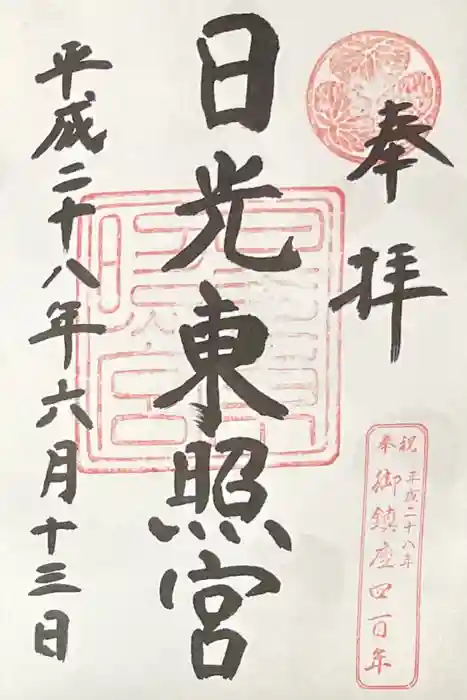 奉拝
日光東照宮
平成二十八年六月十三日
祝 平成二十八年
奉 御鎮座四百年